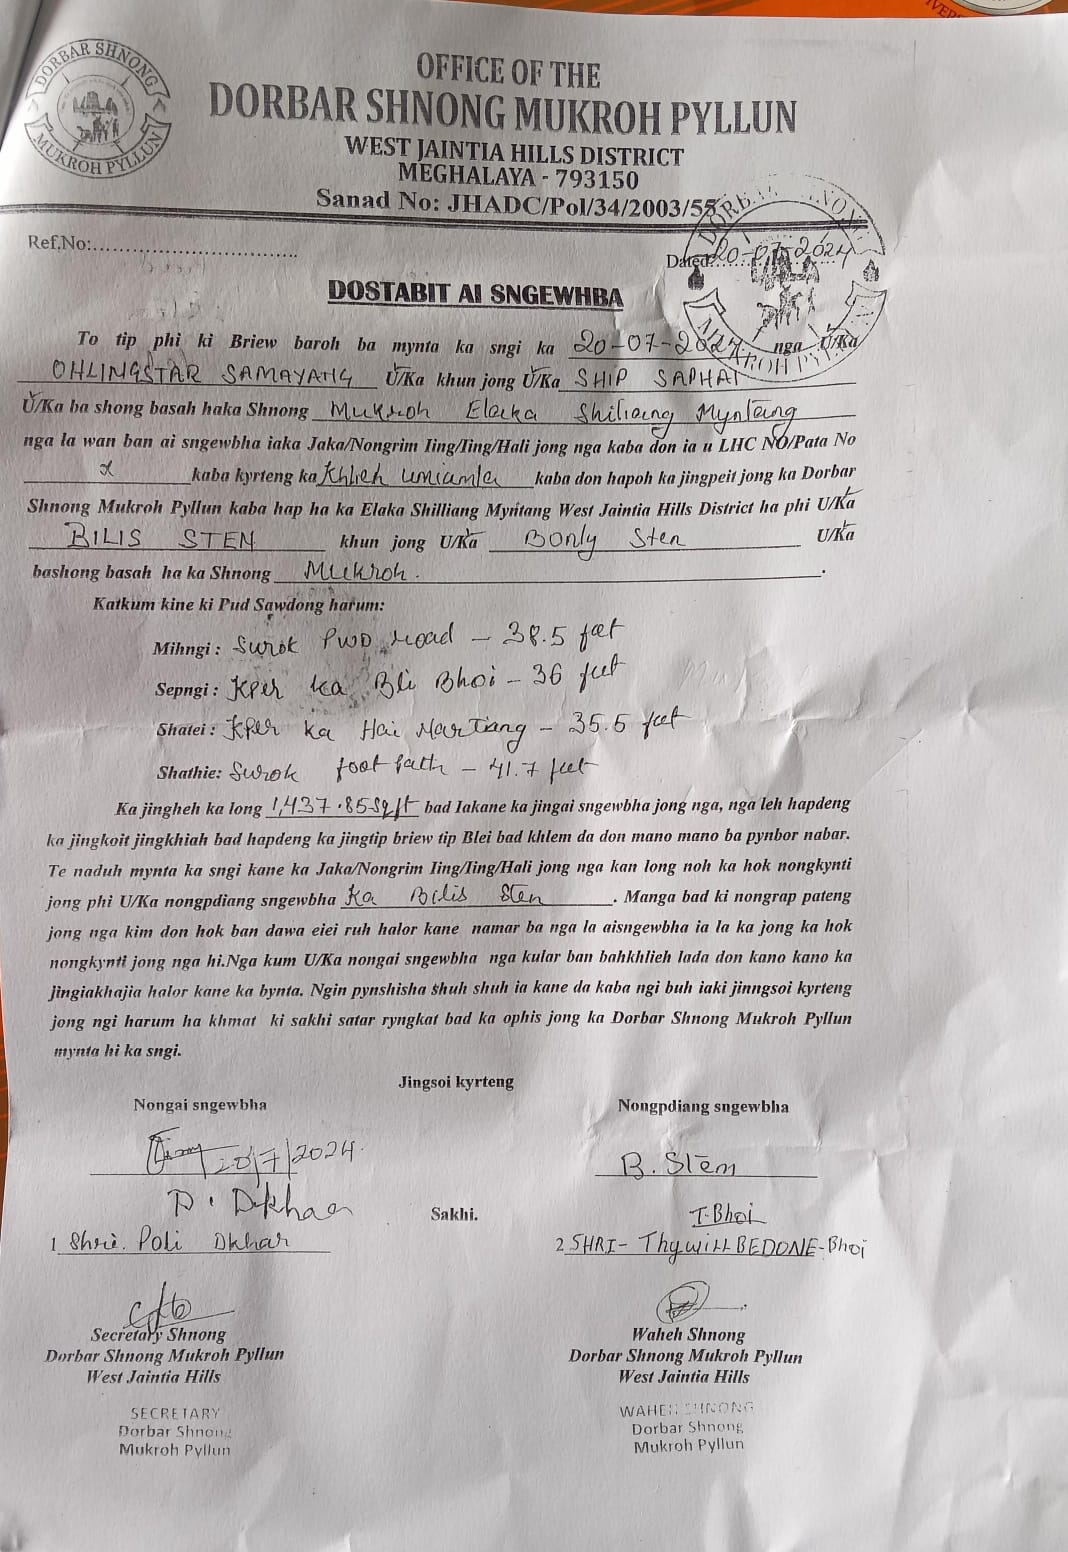 DORBAR SHNONG
MUKROH PYLLUN
OFFICE OF THE
DORBAR SHNONG MUKROH PYLLUN
WEST JAINTIA HILLS DISTRICT
MEGHALAYA - 793150
Sanad No: JHADC/Pol/34/2003/55
Ref.No:
Dated: 20-07-2024
DOSTABIT AI SNGEWHBA
To tip phi ki Briew baroh ba mynta ka sngi ka 20-07-2024 nga U/Ka
OHLINGSTAR SAMAYANG U/Ka khun jong U/Ka SHIP SAPHAI
U/Ka ba shong basah haka Shnong Mukroh Elaka Shiliang Myntang
nga la wan ban ai sngewbha iaka Jaka/Nongrim Iing/Iing/Hali jong nga kaba don ia u LHC NO/Pata No
x kaba kyrteng ka Khlieh Umiamla kaba don hapoh ka jingpeit jong ka Dorbar
Shnong Mukroh Pyllun kaba hap ha ka Elaka Shilliang Myntang West Jaintia Hills District ha phi U/Ka
BILIS STEN khun jong U/Ka Bonly Sten U/Ka
bashong basah ha ka Shnong Mukroh.
Katkum kine ki Pud Sawdong harum:
Mihngi : Surok PWD road - 38.5 feet
Sepngi : Kper ka Bli Bhoi - 36 feet
Shatei : Kper ka Hai Nartiang - 35.5 feet
Shathie: Surok foot path - 41.7 feet
Ka jingheh ka long 1,437.85 Sq/ft bad Iakane ka jingai sngewbha jong nga, nga leh hapdeng
ka jingkoit jingkhiah bad hapdeng ka jingtip briew tip Blei bad khlem da don mano mano ba pynbor nabar.
Te naduh mynta ka sngi kane ka Jaka/Nongrim Iing/Iing/Hali jong nga kan long noh ka hok nongkynti
jong phi U/Ka nongpdiang sngewbha Ka Bilis Sten. Manga bad ki nongrap pateng
jong nga kim don hok ban dawa eiei ruh halor kane namar ba nga la aisngewbha ia la ka jong ka hok
nongkynti jong nga hi.Nga kum U/Ka nongai sngewbha nga kular ban bahkhlieh lada don kano kano ka
jingiakhajia halor kane ka bynta. Ngin pynshisha shuh shuh ia kane da kaba ngi buh iaki jinngsoi kyrteng
jong ngi harum ha khmat ki sakhi satar ryngkat bad ka ophis jong ka Dorbar Shnong Mukroh Pyllun
mynta hi ka sngi.
Jingsoi kyrteng
Nongai sngewbha
Nongpdiang sngewbha
20/7/2024
B. Sten
P. Dkhar
Sakhi.
T. Bhoi
1 Shri. Poli Dkhar
2 SHRI- ThywiLLBEDONE-Bhoi
Secretary Shnong
Dorbar Shnong Mukroh Pyllun
West Jaintia Hills
Waheh Shnong
Dorbar Shnong Mukroh Pyllun
West Jaintia Hills
SECRETARY
Dorbar Shnong
Mukroh Pyllun
WAHEH SHNONG
Dorbar Shnong
Mukroh Pyllun